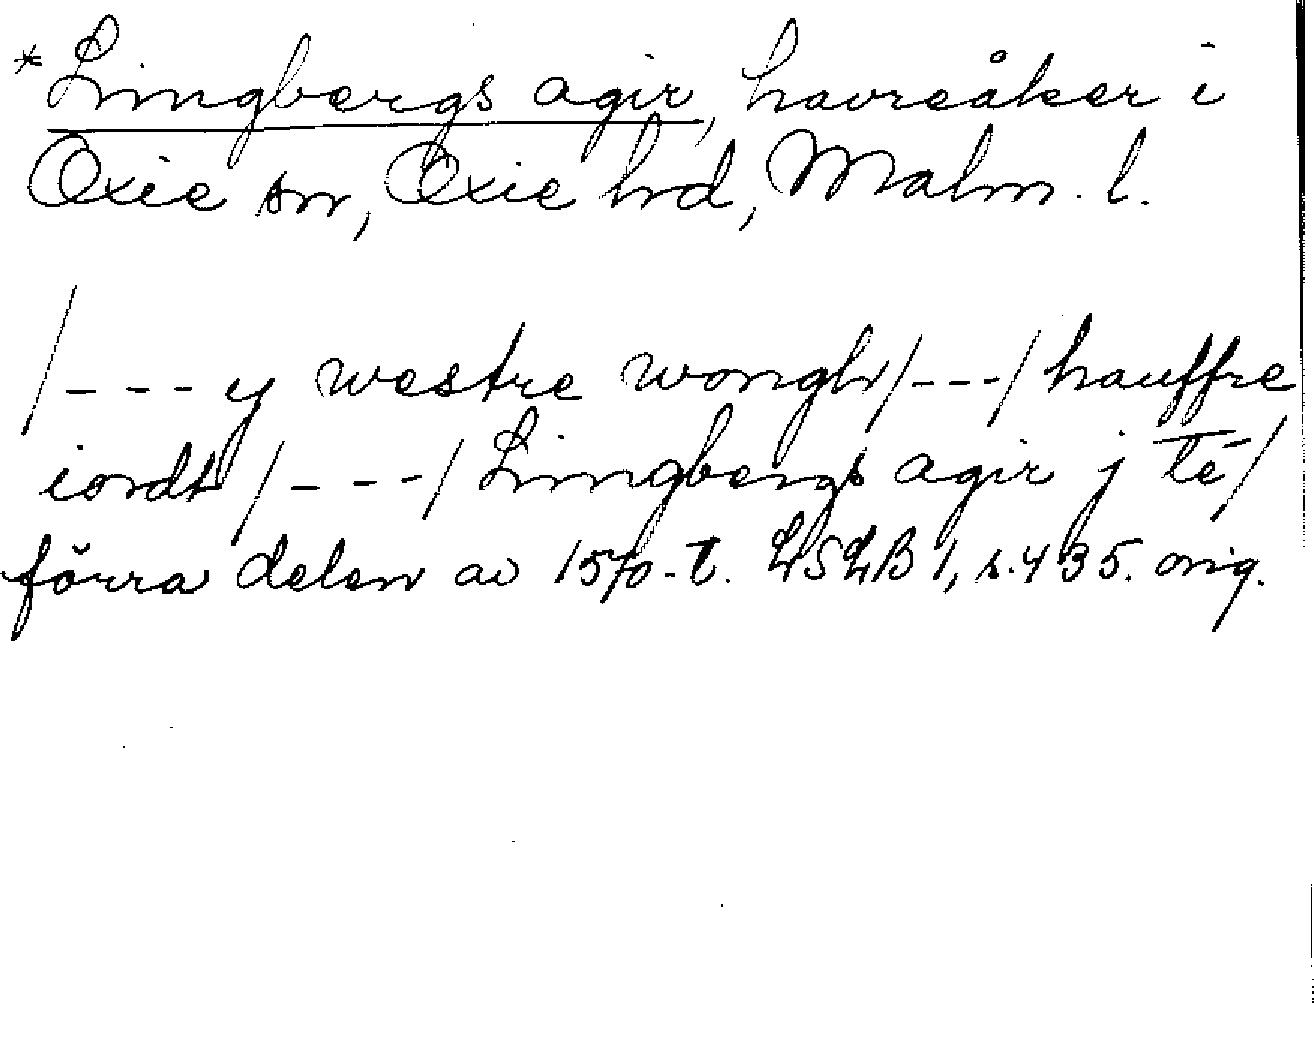 *Limgbergs agir, havreåker i
Oxie sn, Oxie hd, Malm. l.
/--- y westre wongh/---/ hauffre
iordt /---/ Limgbergs agir j té/
förra delen av 1570-t. LSLB 1, s. 435. orig.